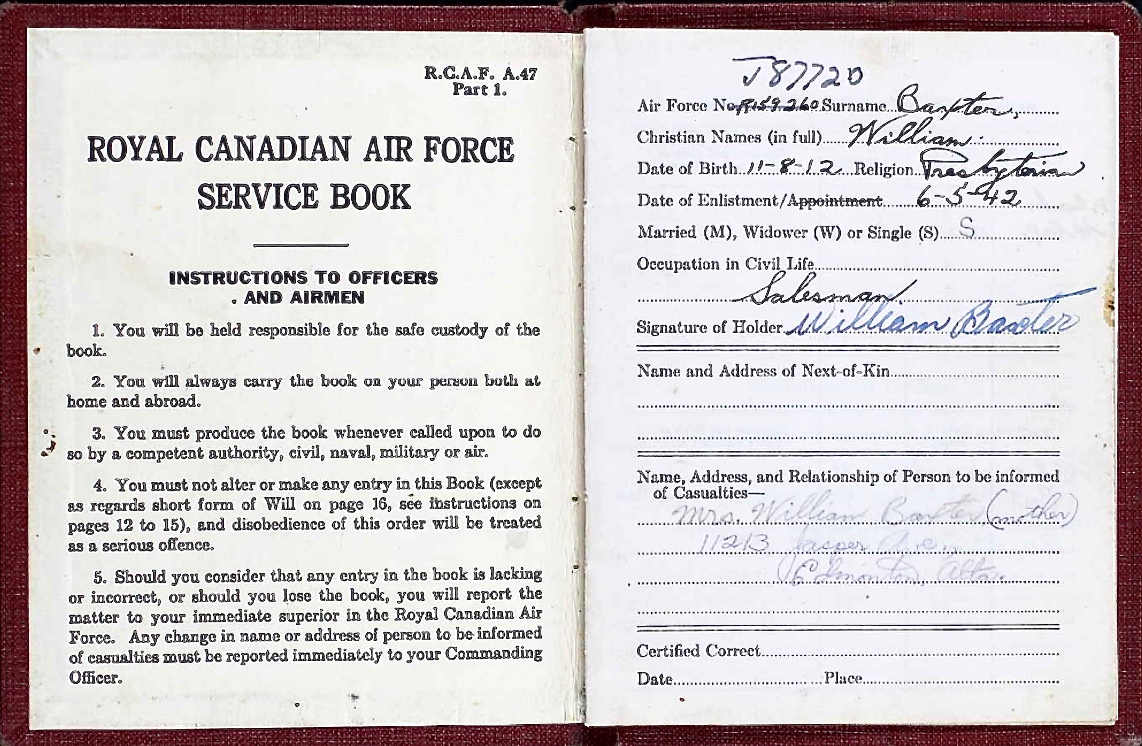 R.C.A.F. A.47
Part 1.
ROYAL CANADIAN AIR FORCE
SERVICE BOOK
INSTRUCTIONS TO OFFICERS
. AND AIRMEN
1. You will be held responsible for the safe custody of the
book.
2. You will always carry the book on your person both at
home and abroad.
3. You must produce the book whenever called upon to do
so by a competent authority, civil, naval, military or air.
4. You must not alter or make any entry in this Book (except
as regards short form of Will on page 16, see instructions on
pages 12 to 15), and disobedience of this order will be treated
as a serious offence.
5. Should you consider that any entry in the book is lacking
or incorrect, or should you lose the book, you will report the
matter to your immediate superior in the Royal Canadian Air
Force. Any change in name or address of person to be informed
of casualties must be reported immediately to your Commanding
Officer.
J87720
Air Force No. R159260 Surname Baxter,
Christian Names (in full) William.
Date of Birth 11-8-12 Religion Presbyterian
Date of Enlistment/Appointment 6-5-42
Married (M), Widower (W) or Single (S) S
Occupation in Civil Life
Salesman.
Signature of Holder William Baxter
Name and Address of Next-of-Kin
Name, Address, and Relationship of Person to be informed
of Casualties—
Mrs. William Baxter (mother)
11213 Jasper Ave.
Edmonton, Alta.
Certified Correct
Date Place